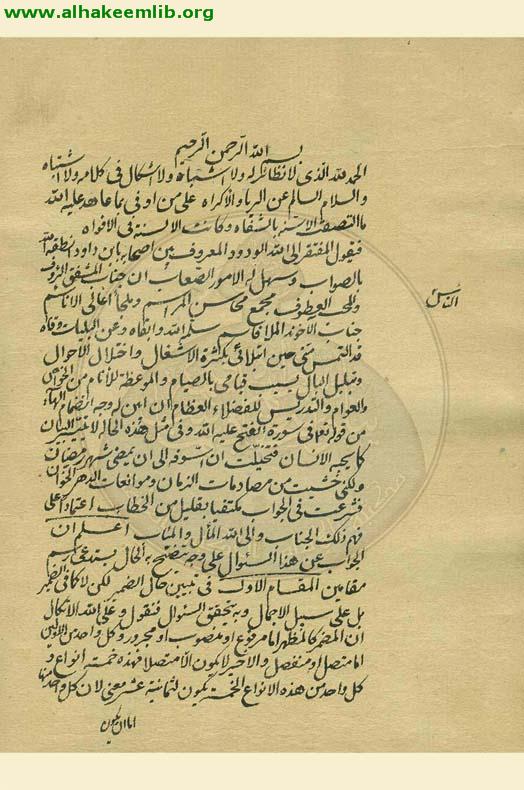 www.alhakeemlib.org
بسم الله الرحمن الرحيم
الحمد لله الذي لا نظائر له ولا اشتباه ولا اشكال في كلامه ولا اشتباه
والسلام السالم عن الريا والاكراه على من اوفى بما عاهد عليه الله
ما التصقت الاسنة بالشفاه وكانت الالسنة في الافواه
فيقول المفتقر الى الله الودود المعروف بين اصحابه بابن داود الله
بالصواب وسهل له الامور الصعاب ان جناب المشفق الرؤف
والمحب العطوف مجمع محاسن المراسم وملجأ اعالي الاناسم
الناس
جناب الاخوند الملا قاسم سلمه الله وابقاه وعن البليات وقاه
قد التمس مني حين ابتلائي بكثرة الاشغال واختلال الاحوال
وتبلبل البال بسبب قيامي بالصيام والموعظة للأنام من الخواص
والعوام والتدريس للفضلاء العظام ان ابين له وجه انضمام الهاء
من قوله تعالى في سورة الفتح عليه الله وفي مثل هذه الحالة لا البيان
كما يحبه الانسان فتخيلت ان اسوفه الى ان يمضي شهر رمضان
ولكني خشيت من مصادمات الزمان وموانعات الدهر الخوان
فشرعت في الجواب مكتفيا بقليل من الخطاب اعتمادا على
فهم ذلك الجناب والى الله المآل والمآب اعلم ان
الجواب عن هذا السئوال على وجه يتضح به الحال يستدعي رسم
مقامين المقام الاول في تبيين حال الضمير لكن لا كما في الضمير
بل على سبيل الاجمال وبه يتحقق السئوال فنقول وعلى الله الاتكال
ان المضمر كالمظهر اما مرفوع او منصوب او مجرور وكل واحد من الاولين
اما متصل او منفصل والاخير لا يكون الا متصلا فهذه خمسة انواع و
كل واحد من هذه الانواع الخمسة يكون لثمانية عشر معنى لان كل واحد منها
اما ان يكون